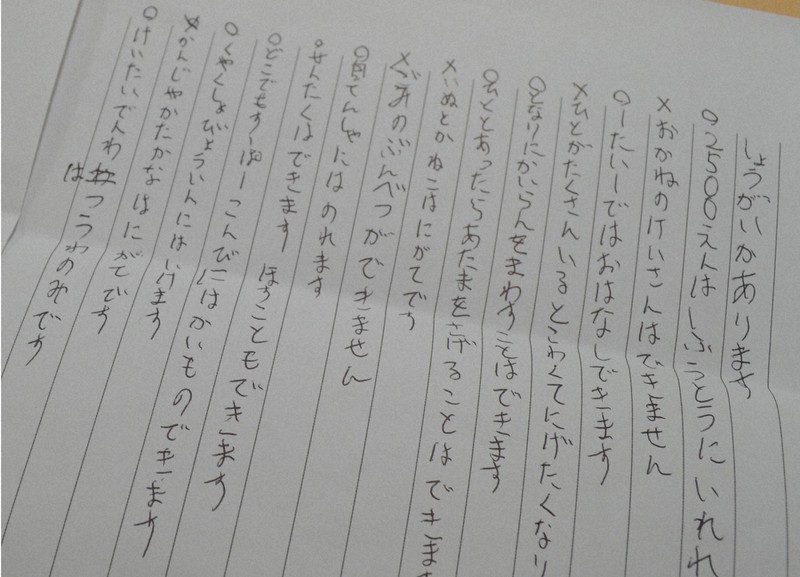 しょうがいかあります
○2500えんはしぶうとうにいれれ
×おかねのけいさんはできません
○一たい一ではおはなしできます
×ひとがたくさんいるとこわくてにげたくなり
○となりにかいらんをまわすことはできます
○ひととあったらあたまをさげることはできま
×いぬとかねこはにがてです
×ごみのぶんべつができません
○自てんしゃにはのれます
○せんたくはできます ほすこともできます
○どこでもすーぱーこんびにはかいものできます
○くやくしょびょういんにはいけます
×かんじやかたかなはにがてです
○けいたいでんわはつうわのみです